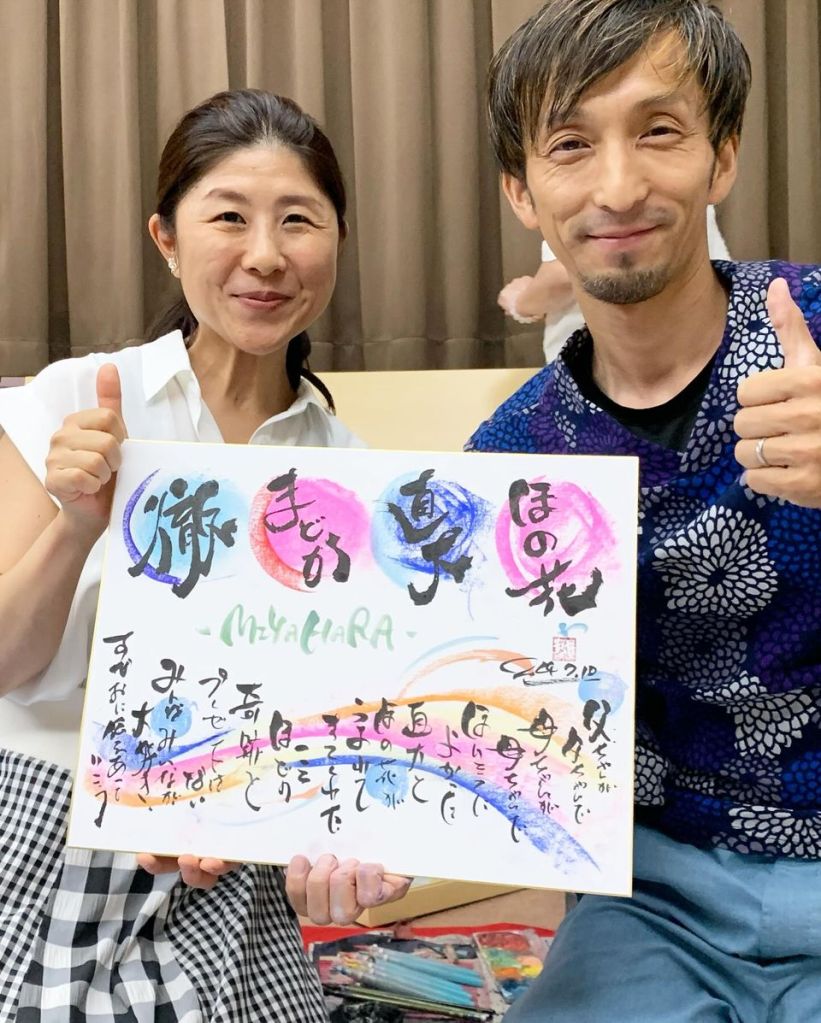 ほの花
直子
まどか
徹
- MiYAHARA -
父ちゃんが
父ちゃんで
母ちゃんが
母ちゃんで
ほんとうに
よかった
まどかと
ほの花が
うまれて
きてくれた
こと
ほどの
奇跡と
プレゼントは
ない
みんなみんなが
大好き、
すなおに伝えあって
いこう